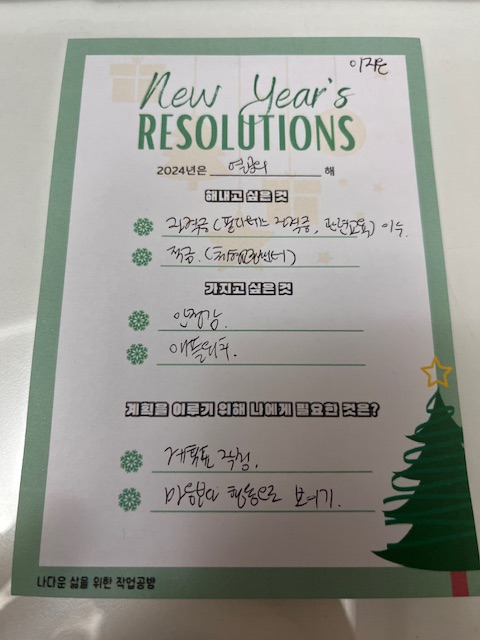 이지은
New Year's
RESOLUTIONS
2024년은 열심의 해
해내고 싶은 것
자격증 (필라테스 자격증, 관련교육) 이수.
적금.
가지고 싶은 것
안정감.
애플워치.
계획을 이루기 위해 나에게 필요한 것은?
계획표 작성.
마음보다 행동으로 보여주기.
나다운 삶을 위한 작업공방